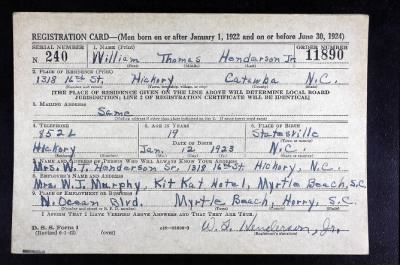 REGISTRATION CARD—(Men born on or after January 1, 1922 and on or before June 30, 1924)
SERIAL NUMBER 1. NAME (Print) ORDER NUMBER
N 240 William Thomas Henderson Jr. 11890
2. PLACE OF RESIDENCE (Print)
1318 16th St. Hickory Catawba N.C.
[THE PLACE OF RESIDENCE GIVEN ON THE LINE ABOVE WILL DETERMINE LOCAL BOARD
JURISDICTION; LINE 2 OF REGISTRATION CERTIFICATE WILL BE IDENTICAL]
3. MAILING ADDRESS
Same
4. TELEPHONE 5. AGE IN YEARS 6. PLACE OF BIRTH
852L 19 Statesville
DATE OF BIRTH
Hickory Jan. 12 1923 N.C.
7. NAME AND ADDRESS OF PERSON WHO WILL ALWAYS KNOW YOUR ADDRESS
Mrs. W. T. Henderson Sr. 1318 16th St. Hickory, N.C.
8. EMPLOYER'S NAME AND ADDRESS
Mrs. W. J. Murphy, Kit Kat Hotel, Myrtle Beach, S.C.
9. PLACE OF EMPLOYMENT OR BUSINESS
N. Ocean Blvd. Myrtle Beach, Horry, S.C.
I AFFIRM THAT I HAVE VERIFIED ABOVE ANSWERS AND THAT THEY ARE TRUE.
D. S. S. Form 1 (over) W. T. Henderson, Jr.
(Registrant's signature)